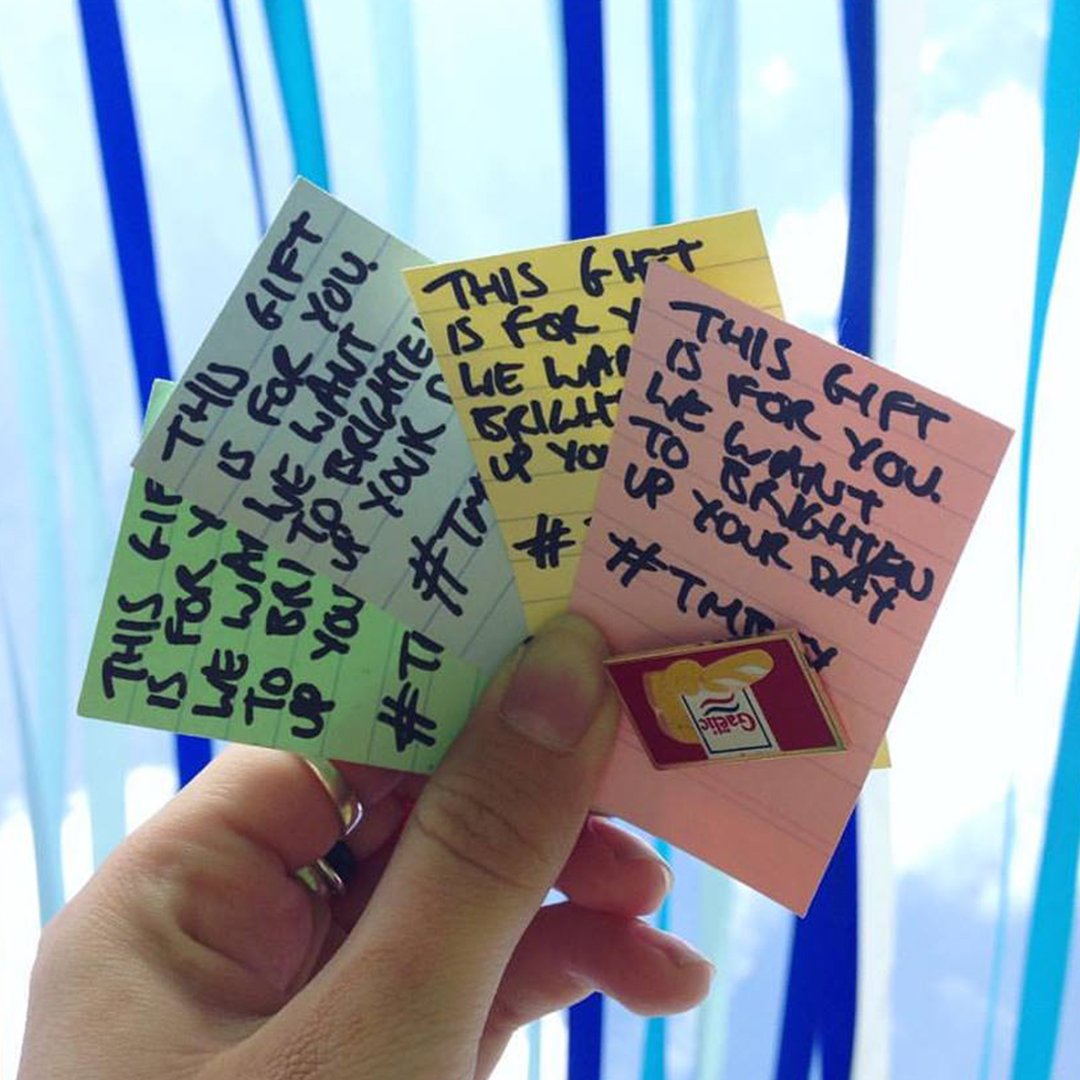 THIS GIF
IS FOR Y
WE WAN
TO BRI
UP YOU
#TI
THIS GIFT
IS FOR YOU.
WE WANT
TO BRIGHTEN
UP YOUR D
#TM
THIS GIFT
IS FOR Y
WE WAN
BRIGHT
UP YOU
#
THIS GIFT
IS FOR YOU.
WE WANT
TO BRIGHTEN
UP YOUR DAY
Gaëlic